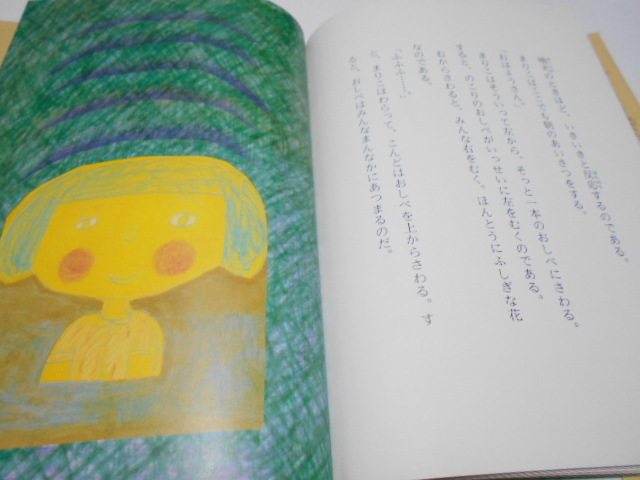 晴天のときほど、いきいきと反応するのである。
まりこはここでも朝のあいさつをする。
「おはようさん」
まりこはそういって左から、そっと一本のおしべにさわる。
すると、のこりのおしべがいっせいに左をむくのである。
右からさわると、みんな右をむく。ほんとうにふしぎな花
なのである。
「ふふふ……。」
と、まりこはわらって、こんどはおしべを上からさわる。す
ると、おしべはみんなまんなかにあつまるのだ。